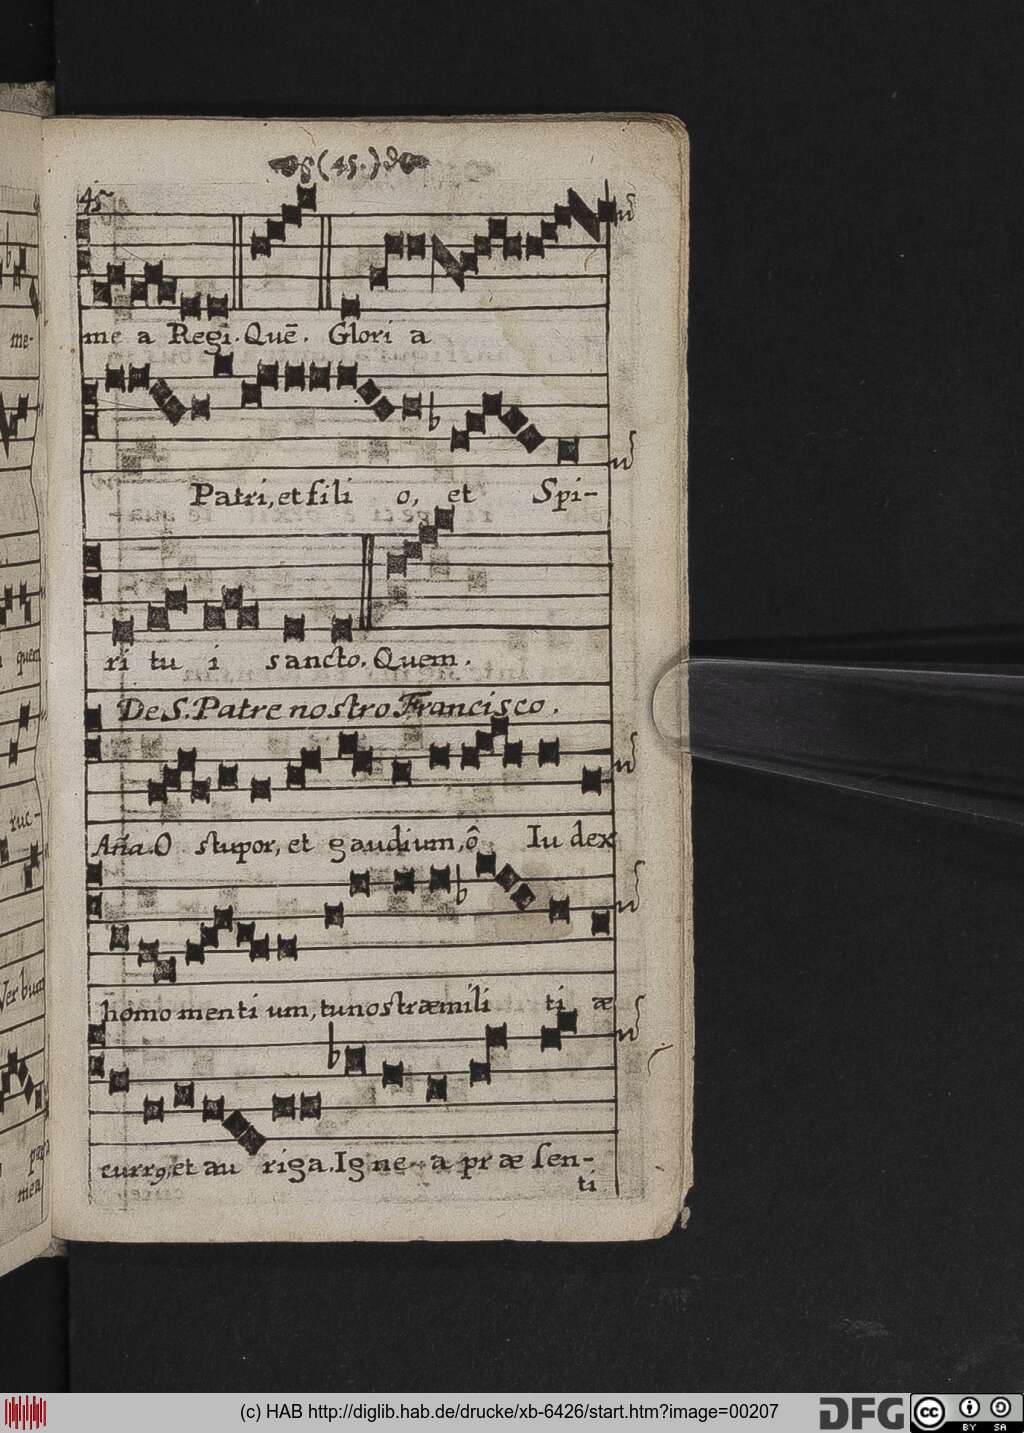 (45.)
45
me a Regī. Quē. Glori a
Patri, et fili o, et Spi-
ri tu i sancto. Quem.
De S. Patre nostro Francisco.
Aña. O stupor, et gaudium, ô Iu dex
homo menti um, tu nostræ mili ti æ
curr9, et au riga. Igne a præ sen-
ti
me-
quem
ruc-
Verbum
mea
(c) HAB http://diglib.hab.de/drucke/xb-6426/start.htm?image=00207
DFG
cc BY SA